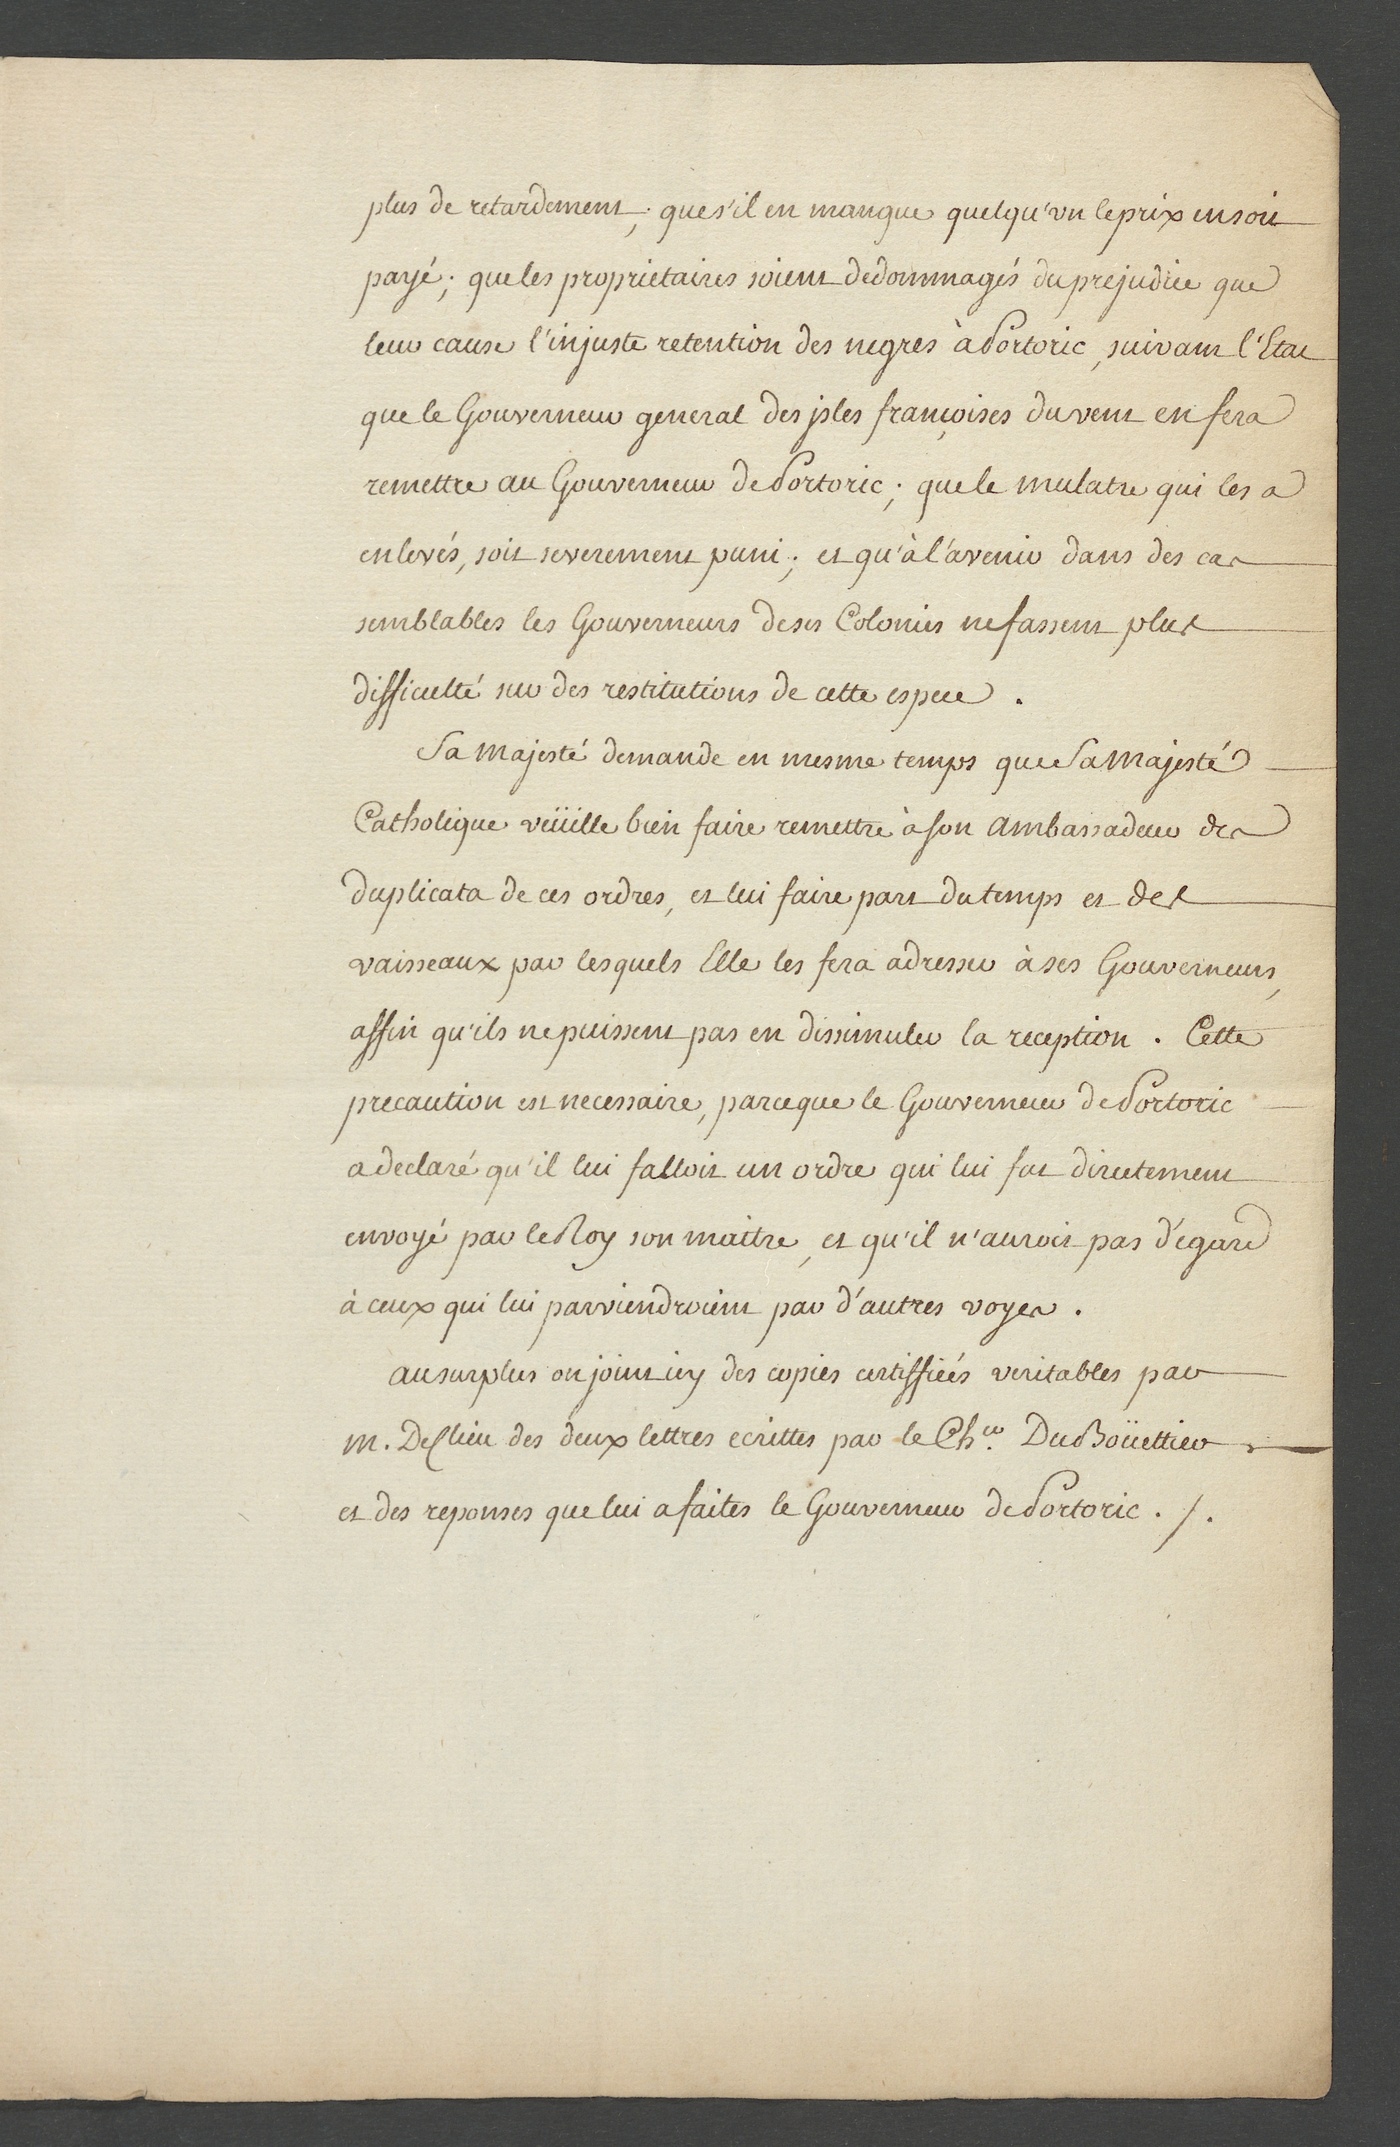 plus de retardement; que s'il en manque quelqu'vn le prix en soit
payé; que les proprietaires soient dedommagés du prejudice que
leur cause l'injuste retention des negres à Portoric, suivant l'Etat
que le Gouverneur general des jsles françoises du vent en fera
remettre au Gouverneur de Portoric; que le mulatre qui les a
enlevés, soit severement puni; et qu'à l'avenir dans des cas
semblables les Gouverneurs de ses Colonies ne fassent plus
difficulté sur des restitutions de cette espece.
Sa Majesté demande en mesme temps que Sa Majesté
Catholique veüille bien faire remettre à son Ambassadeur des
duplicata de ces ordres, et lui faire part du temps et des
vaisseaux par lesquels Elle les fera adresser à ses Gouverneurs,
affin qu'ils ne puissent pas en dissimuler la reception. Cette
precaution est necessaire, parceque le Gouverneur de Portoric
a declaré qu'il lui falloit un ordre qui lui fut directement
envoyé par le Roy son maitre, et qu'il n'auroit pas d'égard
à ceux qui lui parviendroient par d'autres voyes.
Au surplus on joint icy des copies certiffiées veritables par
M. Deslieu des deux lettres ecrittes par le Ch.er Du Boüettier
et des reponses que lui a faites le Gouverneur de Portoric. /.